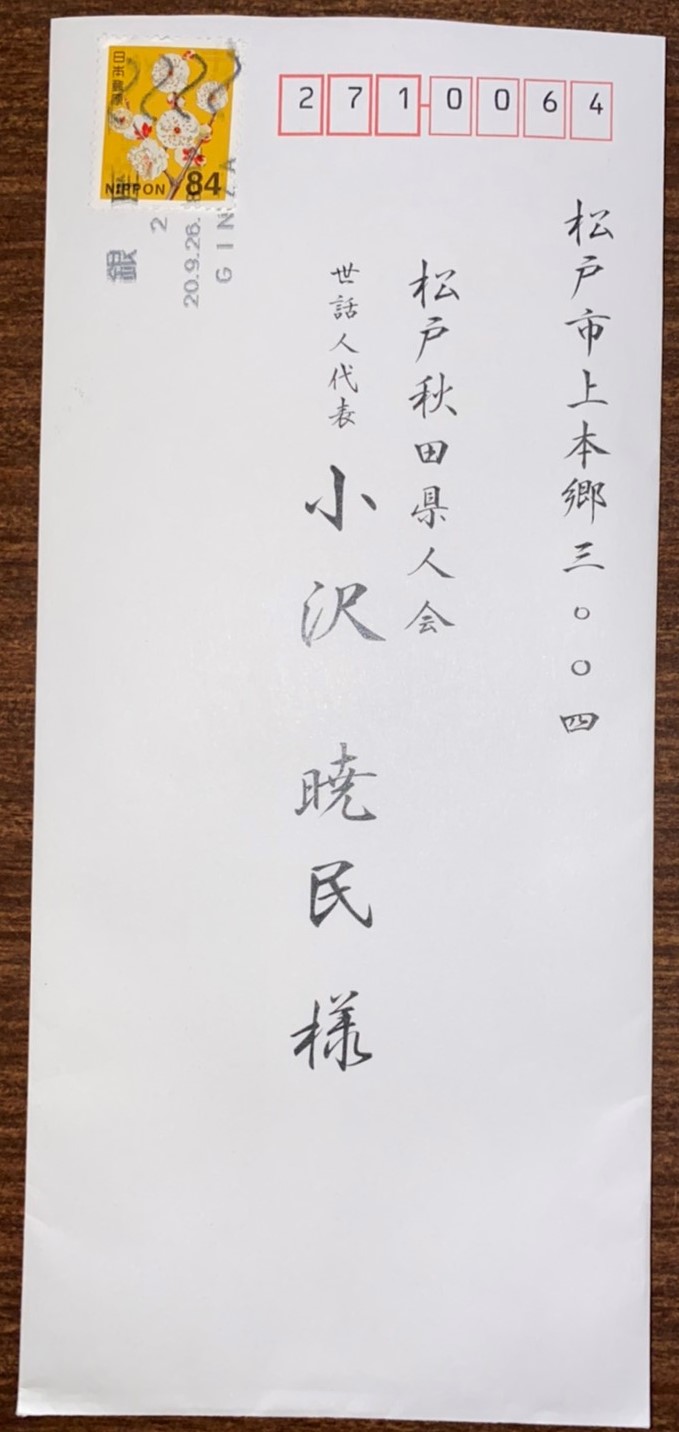 日本郵便
NIPPON 84
銀座
20.9.26.
GINZA
271-0064
松戸市上本郷三〇〇四
松戸秋田県人会
世話人代表
小沢 暁民 様